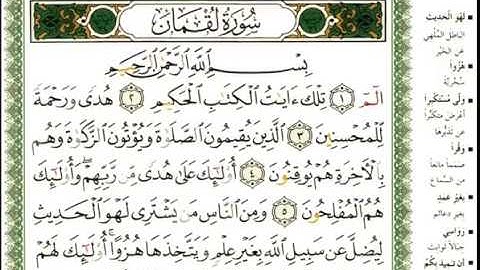 سُورَةُ لُقْمَانَ
بِسْمِ ٱللَّهِ ٱلرَّحْمَٰنِ ٱلرَّحِيمِ
الٓمٓ ١ تِلْكَ ءَايَٰتُ ٱلْكِتَٰبِ ٱلْحَكِيمِ ٢ هُدًى وَرَحْمَةً
لِّلْمُحْسِنِينَ ٣ ٱلَّذِينَ يُقِيمُونَ ٱلصَّلَوٰةَ وَيُؤْتُونَ ٱلزَّكَوٰةَ وَهُم
بِٱلْءَاخِرَةِ هُمْ يُوقِنُونَ ٤ أُو۟لَٰٓئِكَ عَلَىٰ هُدًى مِّن رَّبِّهِمْ ۖ وَأُو۟لَٰٓئِكَ
هُمُ ٱلْمُفْلِحُونَ ٥ وَمِنَ ٱلنَّاسِ مَن يَشْتَرِى لَهْوَ ٱلْحَدِيثِ
لِيُضِلَّ عَن سَبِيلِ ٱللَّهِ بِغَيْرِ عِلْمٍ وَيَتَّخِذَهَا هُزُوًا ۚ أُو۟لَٰٓئِكَ لَهُمْ
لَهْوَ الحَدِيث
الباطل المُلهي
عن الخَيْر
هُزُوًا
سُخْرِيَّة
وَلَّى مُسْتَكْبِرًا
أعْرَضَ مُتَكَبِّرًا
عن تَدَبُّرِها
وَقْرًا
صَمَمًا مانعًا
من السَّماع
بِغَيْرِ عَمَدٍ
بغير دعائم
رَوَاسِيَ
جبالًا ثوابت
أَن تَمِيدَ بِكُمْ